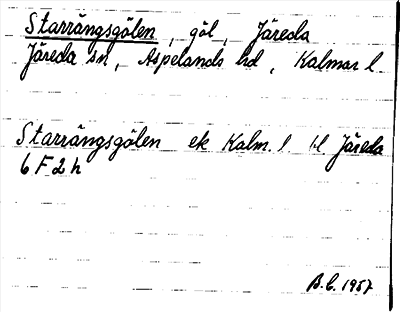 Starrängsgölen, göl, Järeda
Järeda sn, Aspelands hd, Kalmar l.
Starrängsgölen ek Kalm. l. bl Järeda
6 F 2 h
B.E. 1957